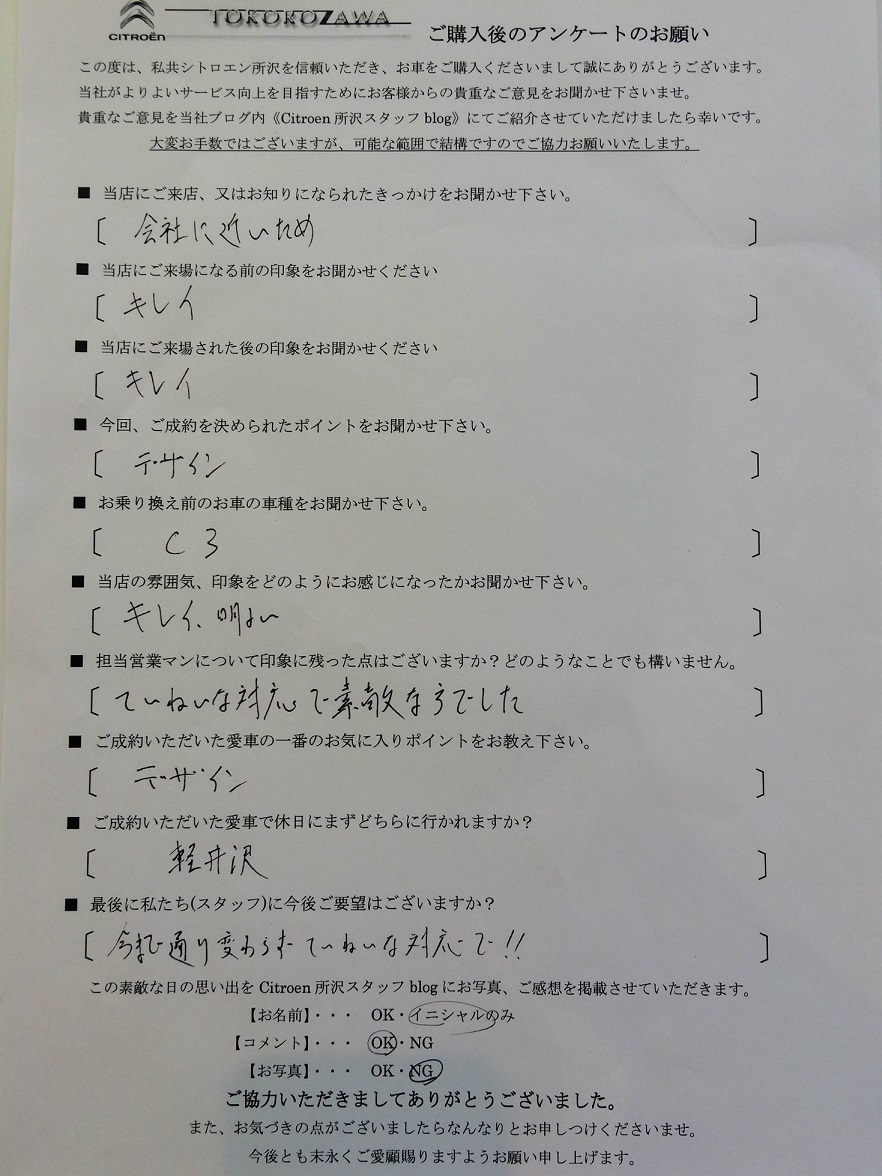 CITROËN
TOKOROZAWA
ご購入後のアンケートのお願い
この度は、私共シトロエン所沢を信頼いただき、お車をご購入くださいまして誠にありがとうございます。
当社がよりよいサービス向上を目指すためにお客様からの貴重なご意見をお聞かせ下さいませ。
貴重なご意見を当社ブログ内《Citroen 所沢スタッフ blog》にてご紹介させていただけましたら幸いです。
大変お手数ではございますが、可能な範囲で結構ですのでご協力お願いいたします。
■ 当店にご来店、又はお知りになられたきっかけをお聞かせ下さい。
[ 会社に近いため ]
■ 当店にご来場になる前の印象をお聞かせください
[ キレイ ]
■ 当店にご来場された後の印象をお聞かせください
[ キレイ ]
■ 今回、ご成約を決められたポイントをお聞かせ下さい。
[ デザイン ]
■ お乗り換え前のお車の車種をお聞かせ下さい。
[ C3 ]
■ 当店の雰囲気、印象をどのようにお感じになったかお聞かせ下さい。
[ キレイ、明るい ]
■ 担当営業マンについて印象に残った点はございますか？どのようなことでも構いません。
[ ていねいな対応で素敵な方でした ]
■ ご成約いただいた愛車の一番のお気に入りポイントをお教え下さい。
[ デザイン ]
■ ご成約いただいた愛車で休日にまずどちらに行かれますか？
[ 軽井沢 ]
■ 最後に私たち(スタッフ)に今後ご要望はございますか？
[ 今まで通り変わらずていねいな対応で!! ]
この素敵な日の思い出を Citroen 所沢スタッフ blog にお写真、ご感想を掲載させていただきます。
【お名前】・・・ OK・イニシャルのみ
【コメント】・・・ OK・NG
【お写真】・・・ OK・NG
ご協力いただきましてありがとうございました。
また、お気づきの点がございましたらなんなりとお申しつけくださいませ。
今後とも末永くご愛顧賜りますようお願い申し上げます。